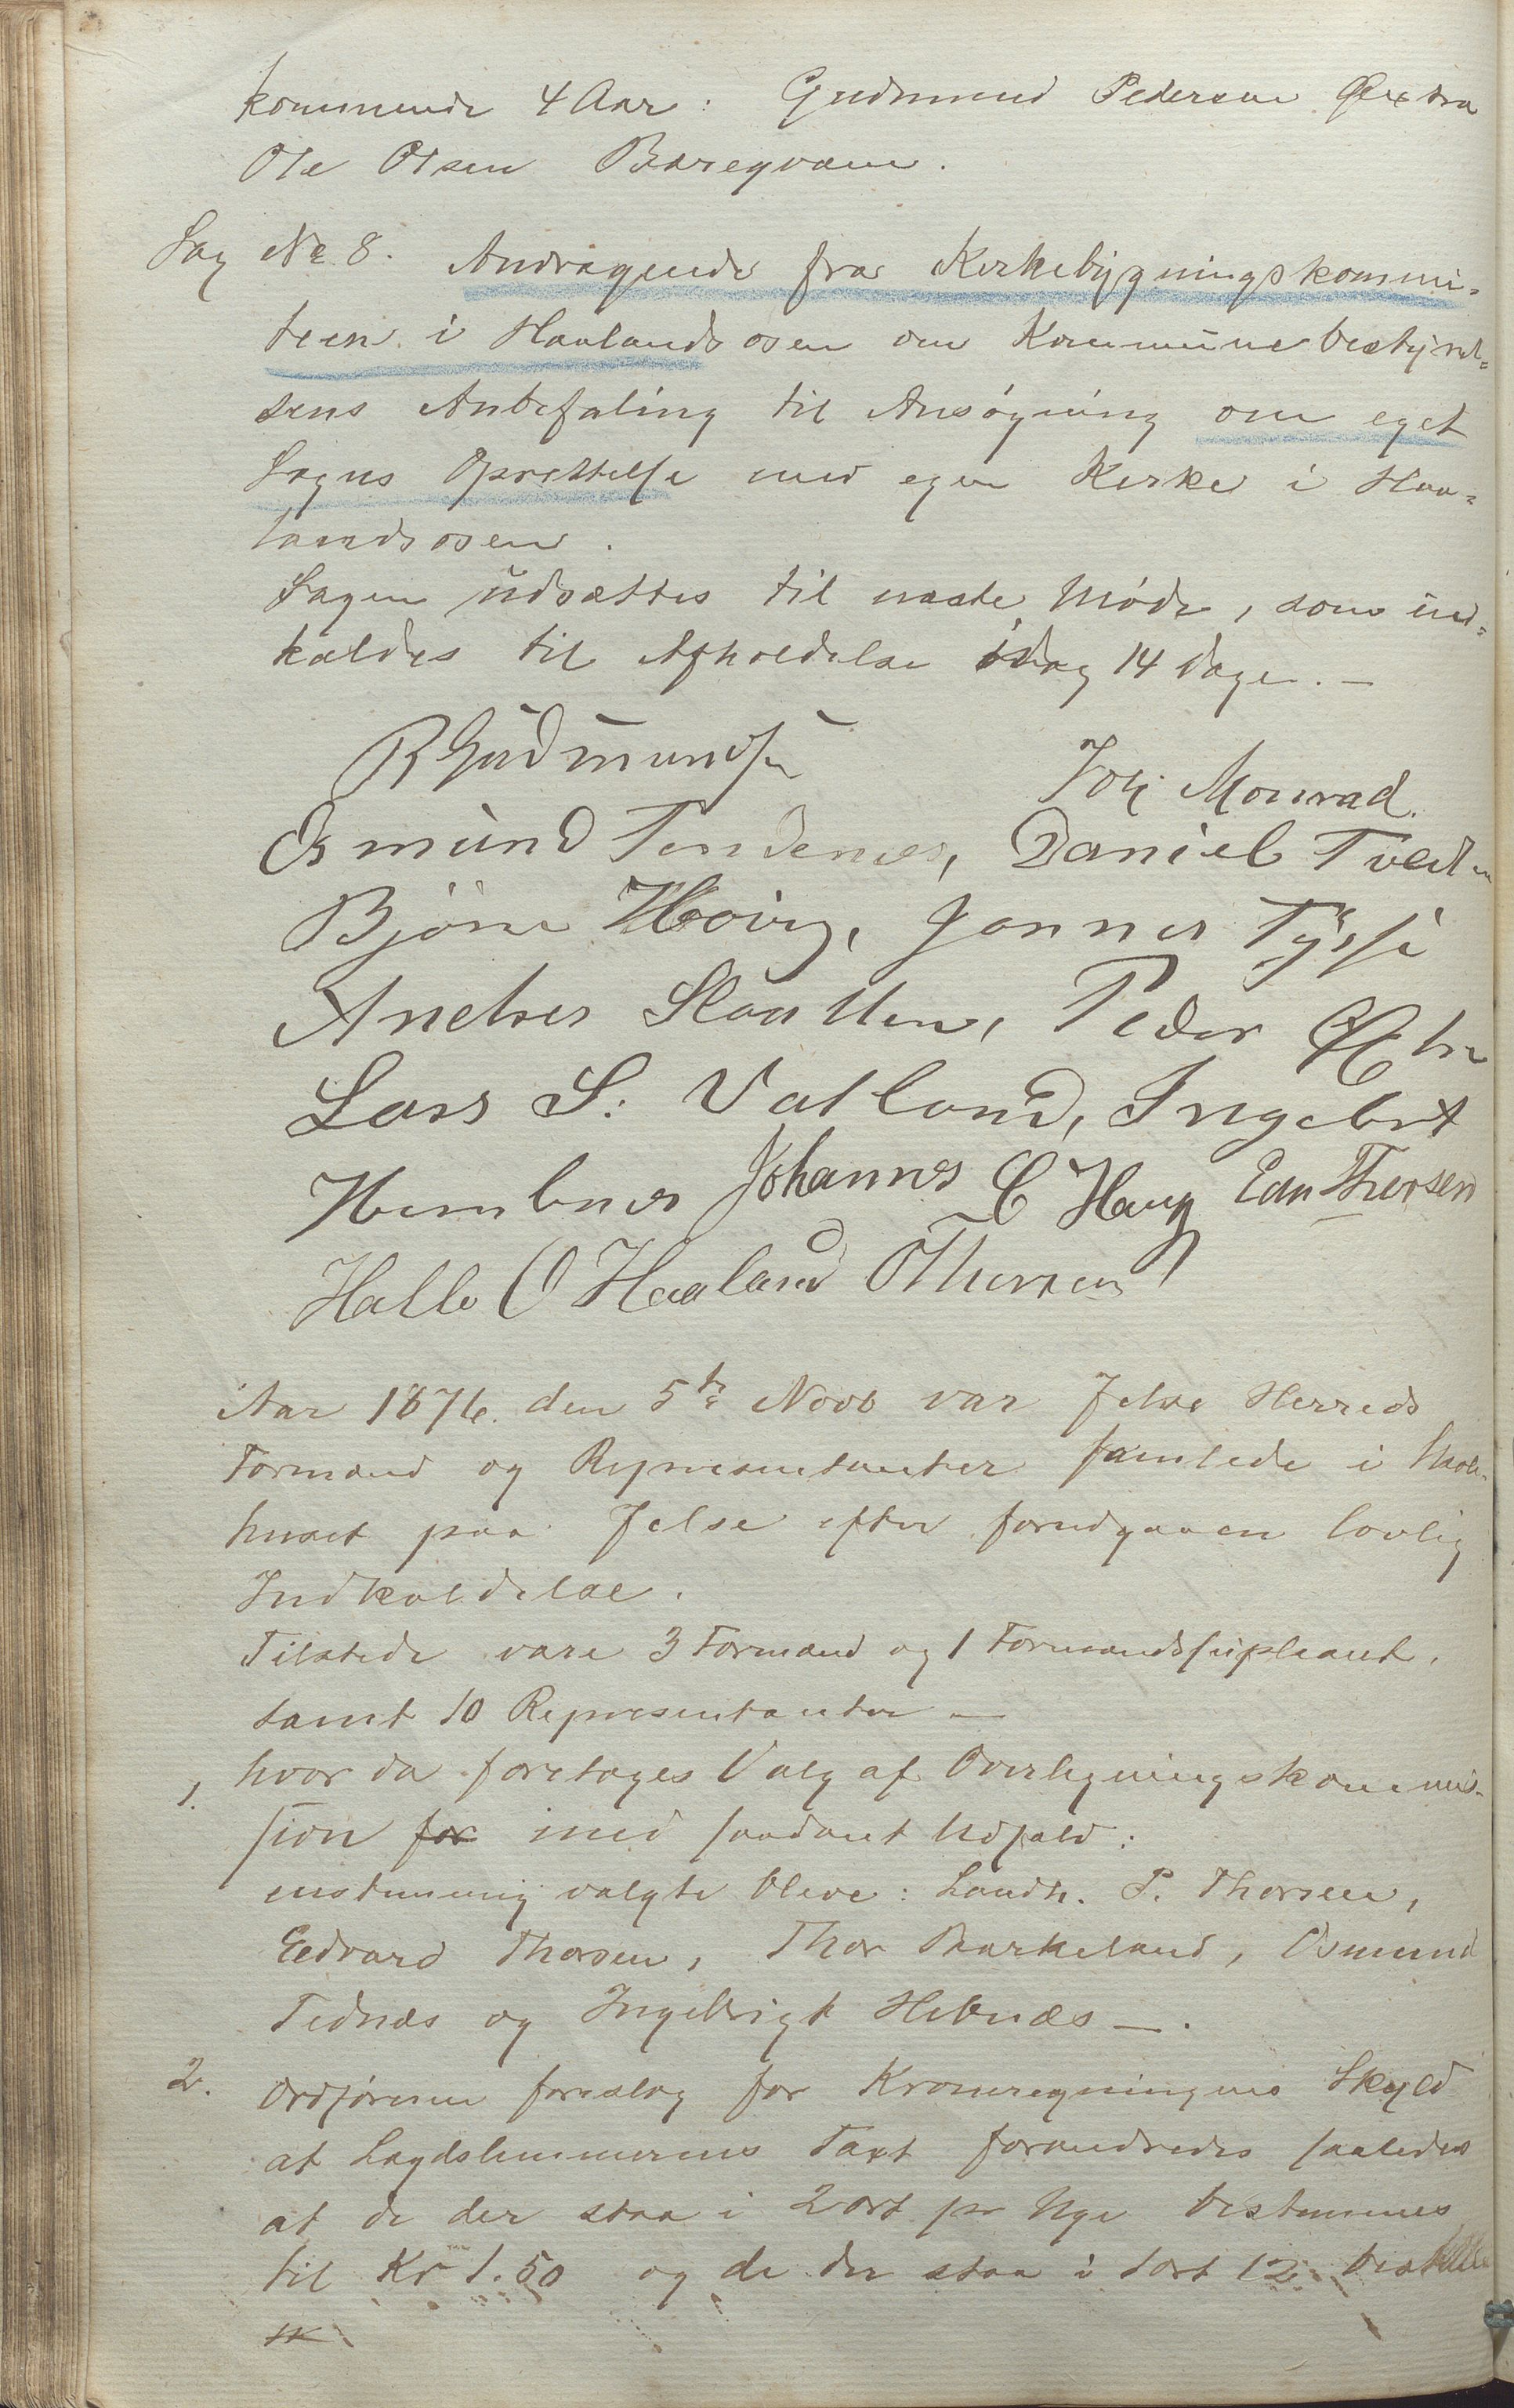 kommende 4 Aar: Gudmund Pedersen
Ole Olsen Bæregvam.
Sag No 8. Andragende fra Kirkebygningskommi-
teen i Haalandsosen om Kommunebestyrel-
sens Anbefaling til Ansøgning om eget
Sogns Oprettelse med egen Kirke i Haa-
landsosen.
Sagen udsættes til næste Møde, som ind-
kaldes til Afholdelse idag 14 Dage. —
R Gudmundsen Joh Monrad.
Osmund Tendenes, Daniel Tveden
Bjørn Høivig, Jonnes Tysse
Andres Slaatten, Peder
Lars S. Vatland, Ingebret
Hembnes Johannes C Haug Edv Thorsen
Halle O Haaland O Thorsen
Aar 1876. den 5te Novb var Jelse Herreds
Formænd og Representanter samlede i
huset paa Jelse efter forudgaaen lovlig
Indkaldelse.
Tilstede vare 3 Formænd og 1 Formandssupleant,
samt 10 Representanter —
1. hvor da foretoges Valg af Overligningskommis-
sion for med saadant Udfald:
enstemmig valgte bleve: Landh. P. Thorsen,
Edvard Thorsen, Thor Barkeland, Osmund
Tednæs og Ingebrigt Hebnæs —.
2. Ordføreren foreslog for Kroneregningens Skyld
at Lægdslemmernes Taxt forandredes saaledes
at de der staa i 2 ort pr Uge bestemmes
til Kr 1.50 og de der staa i 1 ort 12